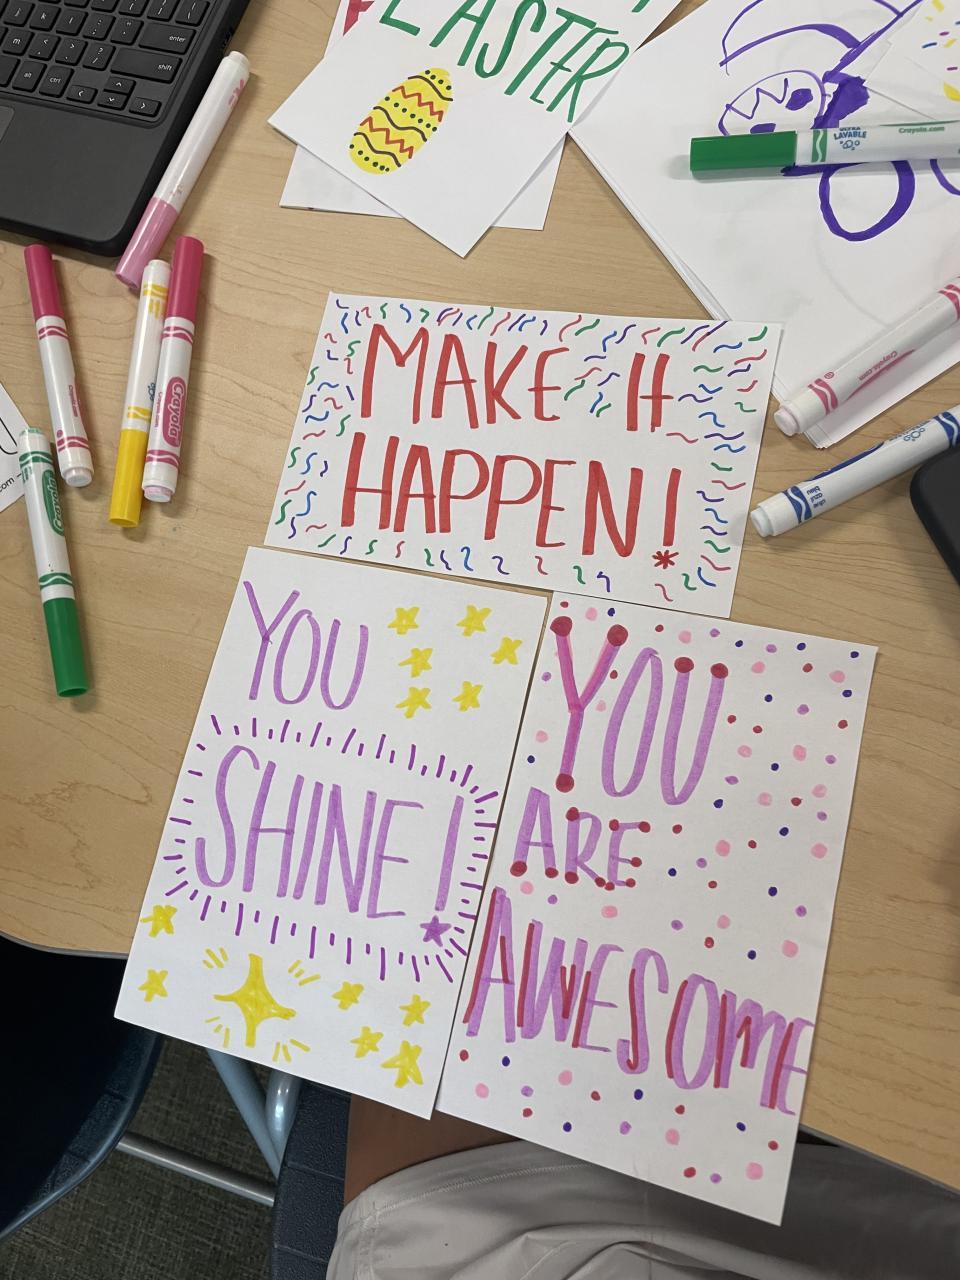 EASTER
MAKE It
HAPPEN!
YOU
SHINE!
YOU
ARE
AWESOME
enter
shift
alt
ctrl
ULTRA
LAVABLE
Crayola.com
Crayola
Crayola